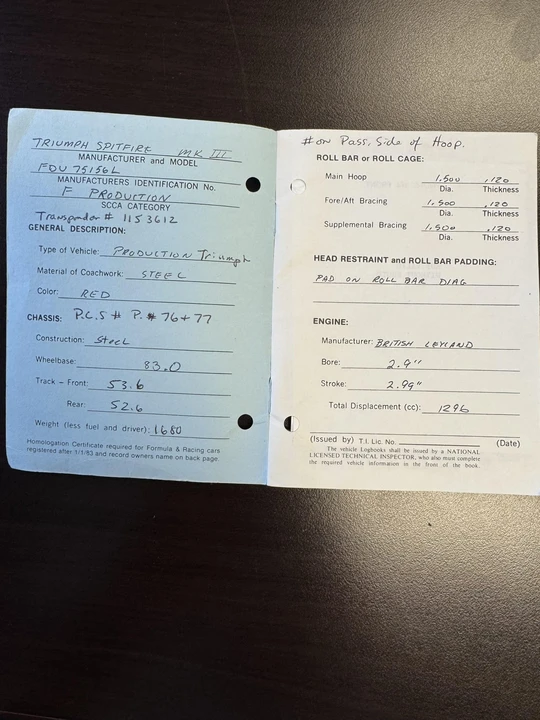 TRIUMPH SPITFIRE MK III.
MANUFACTURER and MODEL
FDU 75156L
MANUFACTURERS IDENTIFICATION No.
F PRODUCTION
SCCA CATEGORY
Transponder # 1153612
GENERAL DESCRIPTION:
Type of Vehicle: PRODUCTION Triumph
Material of Coachwork: STEEL
Color: RED
CHASSIS: P.C.S # P. # 76+77
Construction: Steel
Wheelbase: 83.0
Track – Front: 53.6
Rear: 52.6
Weight (less fuel and driver): 1680
Homologation Certificate required for Formula & Racing cars
registered after 1/1/83 and record owners name on back page.
# on Pass. Side of Hoop.
ROLL BAR or ROLL CAGE:
Main Hoop 1.500 .120
Dia. Thickness
Fore/Aft Bracing 1.500 .120
Dia. Thickness
Supplemental Bracing 1.500 .120
Dia. Thickness
HEAD RESTRAINT and ROLL BAR PADDING:
PAD ON ROLL BAR DIAG
ENGINE:
Manufacturer: BRITISH LEYLAND
Bore: 2.9"
Stroke: 2.99"
Total Displacement (cc): 1296
(Issued by) T.I. Lic. No. (Date)
The vehicle Logbooks shall be issued by a NATIONAL
LICENSED TECHNICAL INSPECTOR, who also must complete
the required vehicle information in the front of the book.